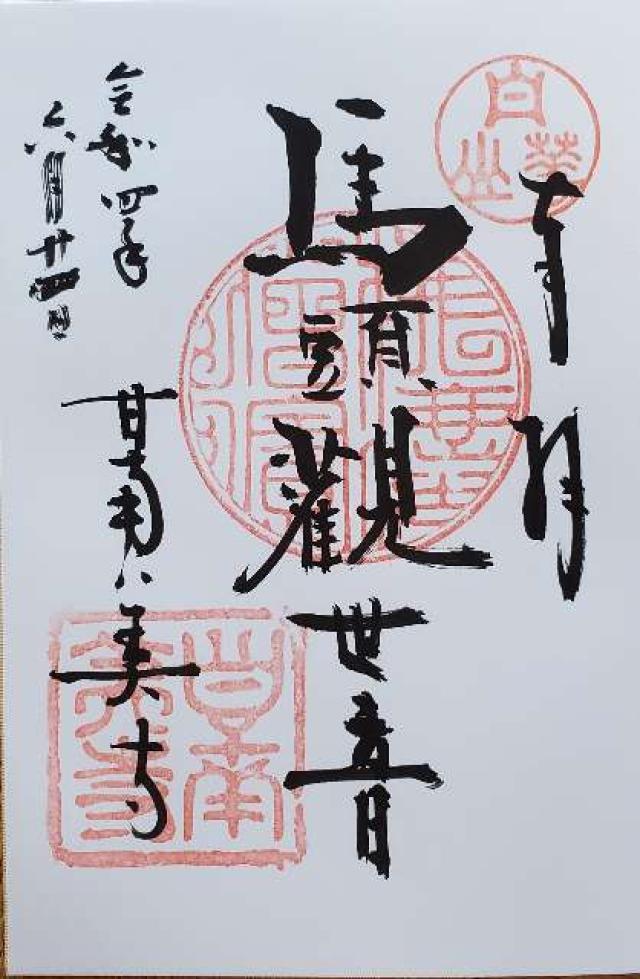 白華山
奉拝
馬頭觀世音
令和四年
六月廿四日
甘南美寺
甘南美寺